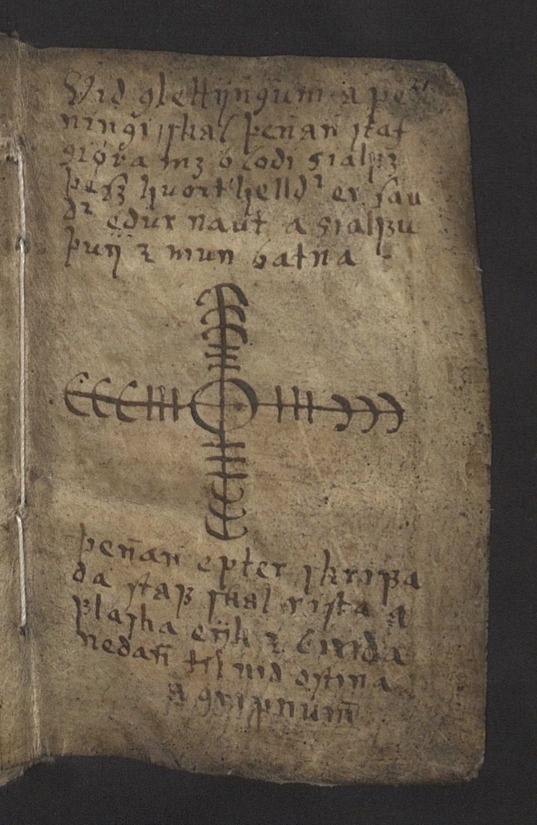 Við glettijngum a pe
ningi skal þen̄an staf
giöra mz blodi sialfz
þesz huort helldr er sau
dr edur naut a sialfu
þuij ꝛ mun batna
þen̄an epter skrifa
da staf skal rista a
flaska eijk ꝛ binda
nedan̄ til uid ostina
a gripnum̄